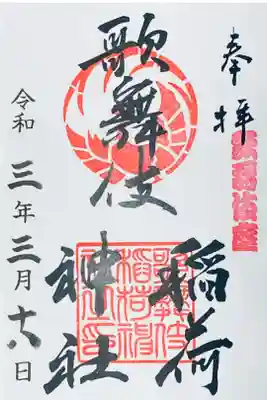 奉拝
歌舞伎座
歌舞伎
稲荷
神社
令和三年三月十六日